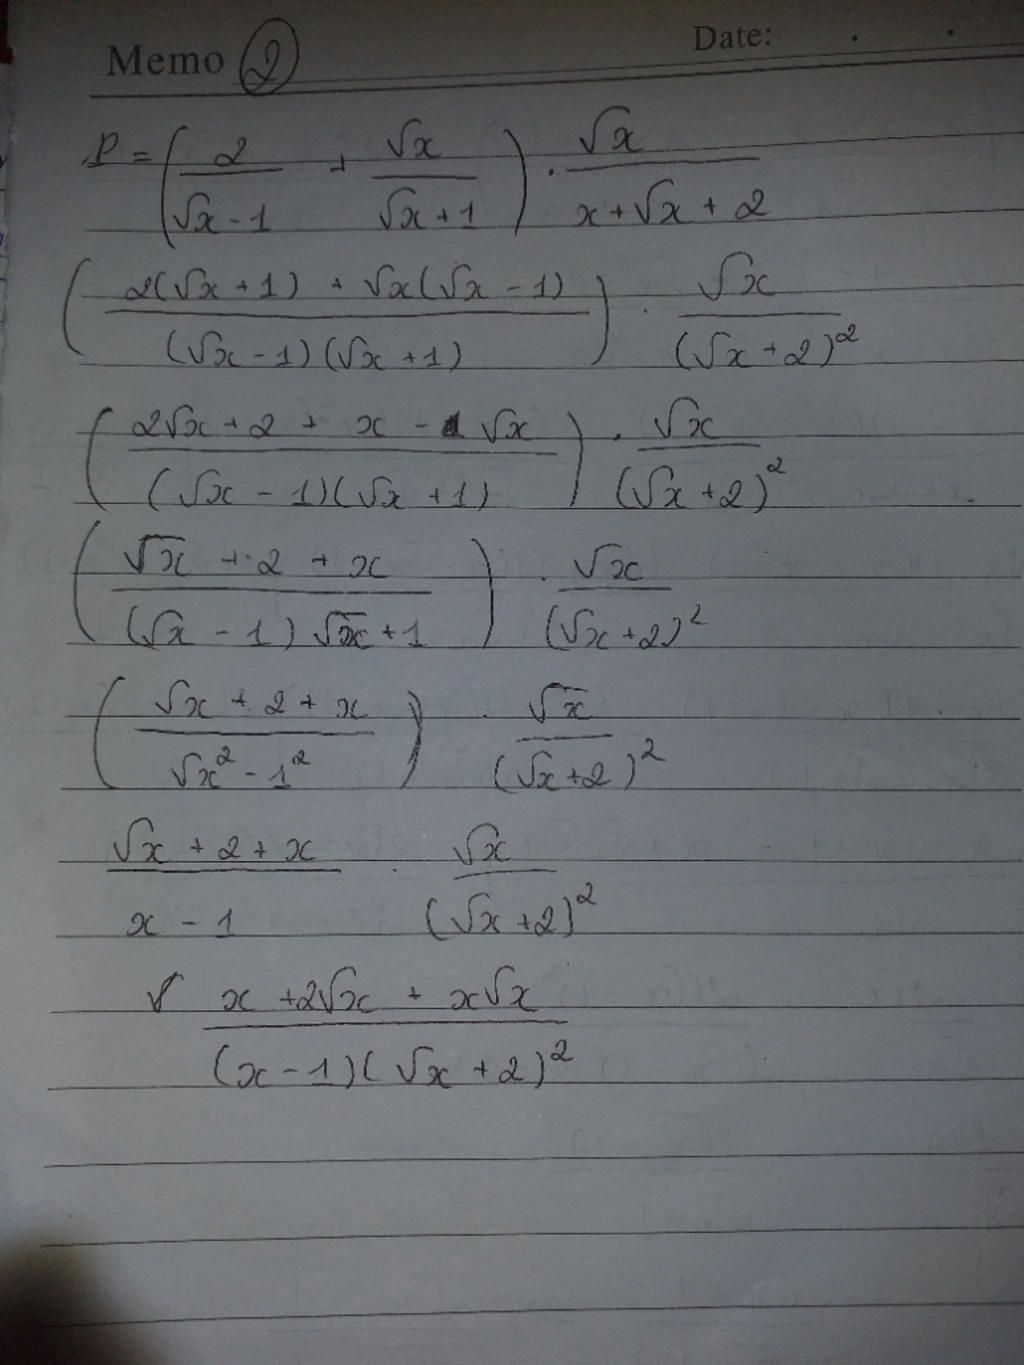 Memo 2 Date: . .
P = ( 2/(√x - 1) + √x/(√x + 1) ) . √x/(x + √x + 2)
( (2(√x + 1) + √x(√x - 1))/((√x - 1)(√x + 1)) ) . √x/(√x + 2)²
( (2√x + 2 + x - √x)/((√x - 1)(√x + 1)) ) . √x/(√x + 2)²
( (√x + 2 + x)/((√x - 1) √x + 1) ) . √x/(√x + 2)²
( (√x + 2 + x)/(√x² - 1²) ) . √x/(√x + 2)²
(√x + 2 + x)/(x - 1) . √x/(√x + 2)²
(x + 2√x + x√x)/((x - 1)(√x + 2)²)